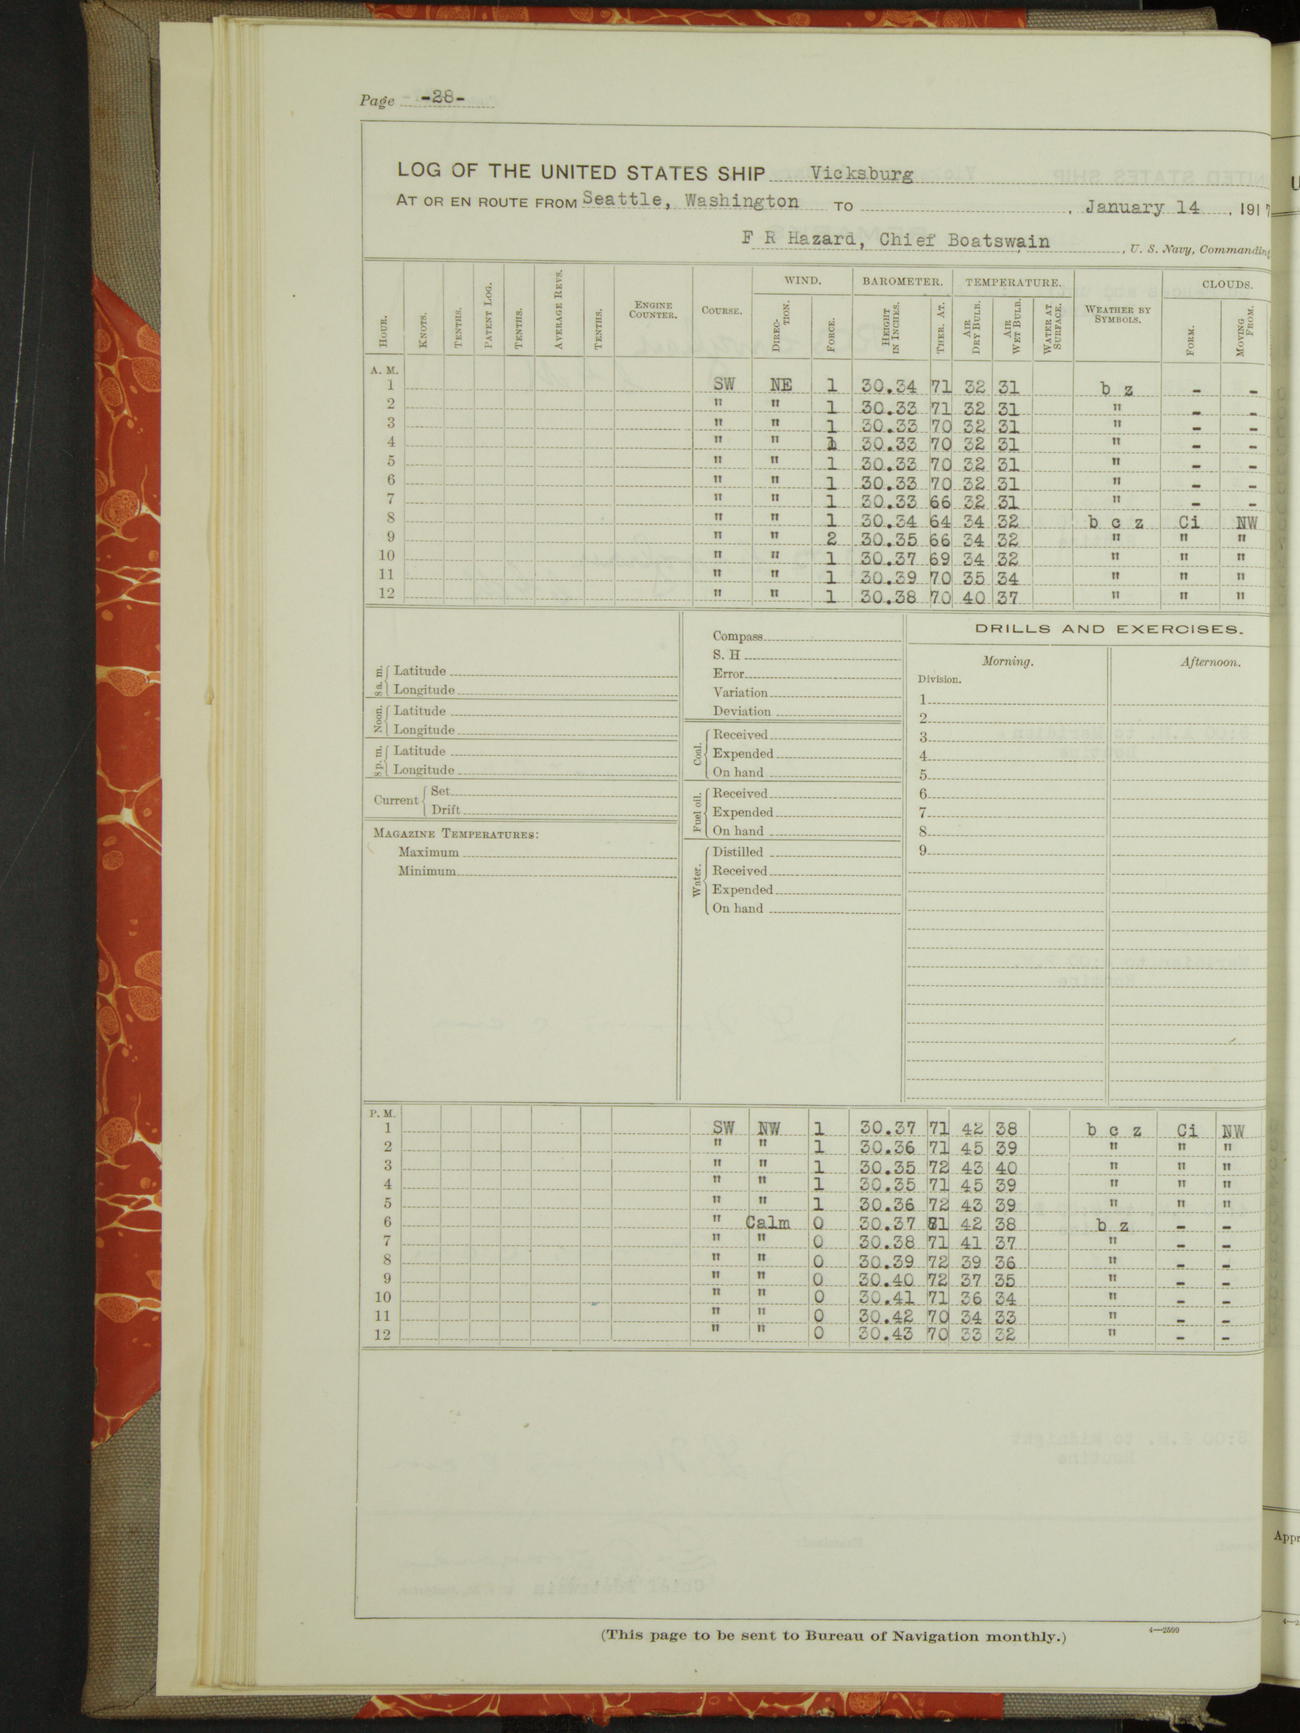 Page -28-
LOG OF THE UNITED STATES SHIP Vicksburg
AT OR EN ROUTE FROM Seattle, Washington TO , January 14, 1917
F R Hazard, Chief Boatswain, U. S. Navy, Commanding
WIND. BAROMETER. TEMPERATURE. CLOUDS.
HOUR. KNOTS. TENTHS. PATENT LOG. TENTHS. AVERAGE REVS. TENTHS. ENGINE COUNTER. COURSE. DIRECTION. FORCE. HEIGHT IN INCHES. THER. AT. AIR DRY BULB. AIR WET BULB. WATER AT SURFACE. WEATHER BY SYMBOLS. FORM. MOVING FROM.
A. M.
1 SW NE 1 30.34 71 32 31 b z - -
2 " " 1 30.33 71 32 31 " - -
3 " " 1 30.33 70 32 31 " - -
4 " " 1 30.33 70 32 31 " - -
5 " " 1 30.33 70 32 31 " - -
6 " " 1 30.33 70 32 31 " - -
7 " " 1 30.33 66 32 31 " - -
8 " " 1 30.34 64 34 32 b c z Ci NW
9 " " 2 30.35 66 34 32 " " "
10 " " 1 30.37 69 34 32 " " "
11 " " 1 30.39 70 35 34 " " "
12 " " 1 30.38 70 40 37 " " "
8 a. m. Latitude
Longitude
Noon. Latitude
Longitude
8 p. m. Latitude
Longitude
Current Set
Drift
MAGAZINE TEMPERATURES:
Maximum
Minimum
Compass
S. H
Error
Variation
Deviation
Coal. Received
Expended
On hand
Fuel oil. Received
Expended
On hand
Water. Distilled
Received
Expended
On hand
DRILLS AND EXERCISES.
Morning. Afternoon.
Division.
1
2
3
4
5
6
7
8
9
P. M.
1 SW NW 1 30.37 71 42 38 b c z Ci NW
2 " " 1 30.36 71 45 39 " " "
3 " " 1 30.35 72 43 40 " " "
4 " " 1 30.35 71 45 39 " " "
5 " " 1 30.36 72 43 39 " " "
6 " Calm 0 30.37 71 42 38 b z - -
7 " " 0 30.38 71 41 37 " - -
8 " " 0 30.39 72 39 36 " - -
9 " " 0 30.40 72 37 35 " - -
10 " " 0 30.41 71 36 34 " - -
11 " " 0 30.42 70 34 33 " - -
12 " " 0 30.43 70 33 32 " - -
(This page to be sent to Bureau of Navigation monthly.) 4—2599